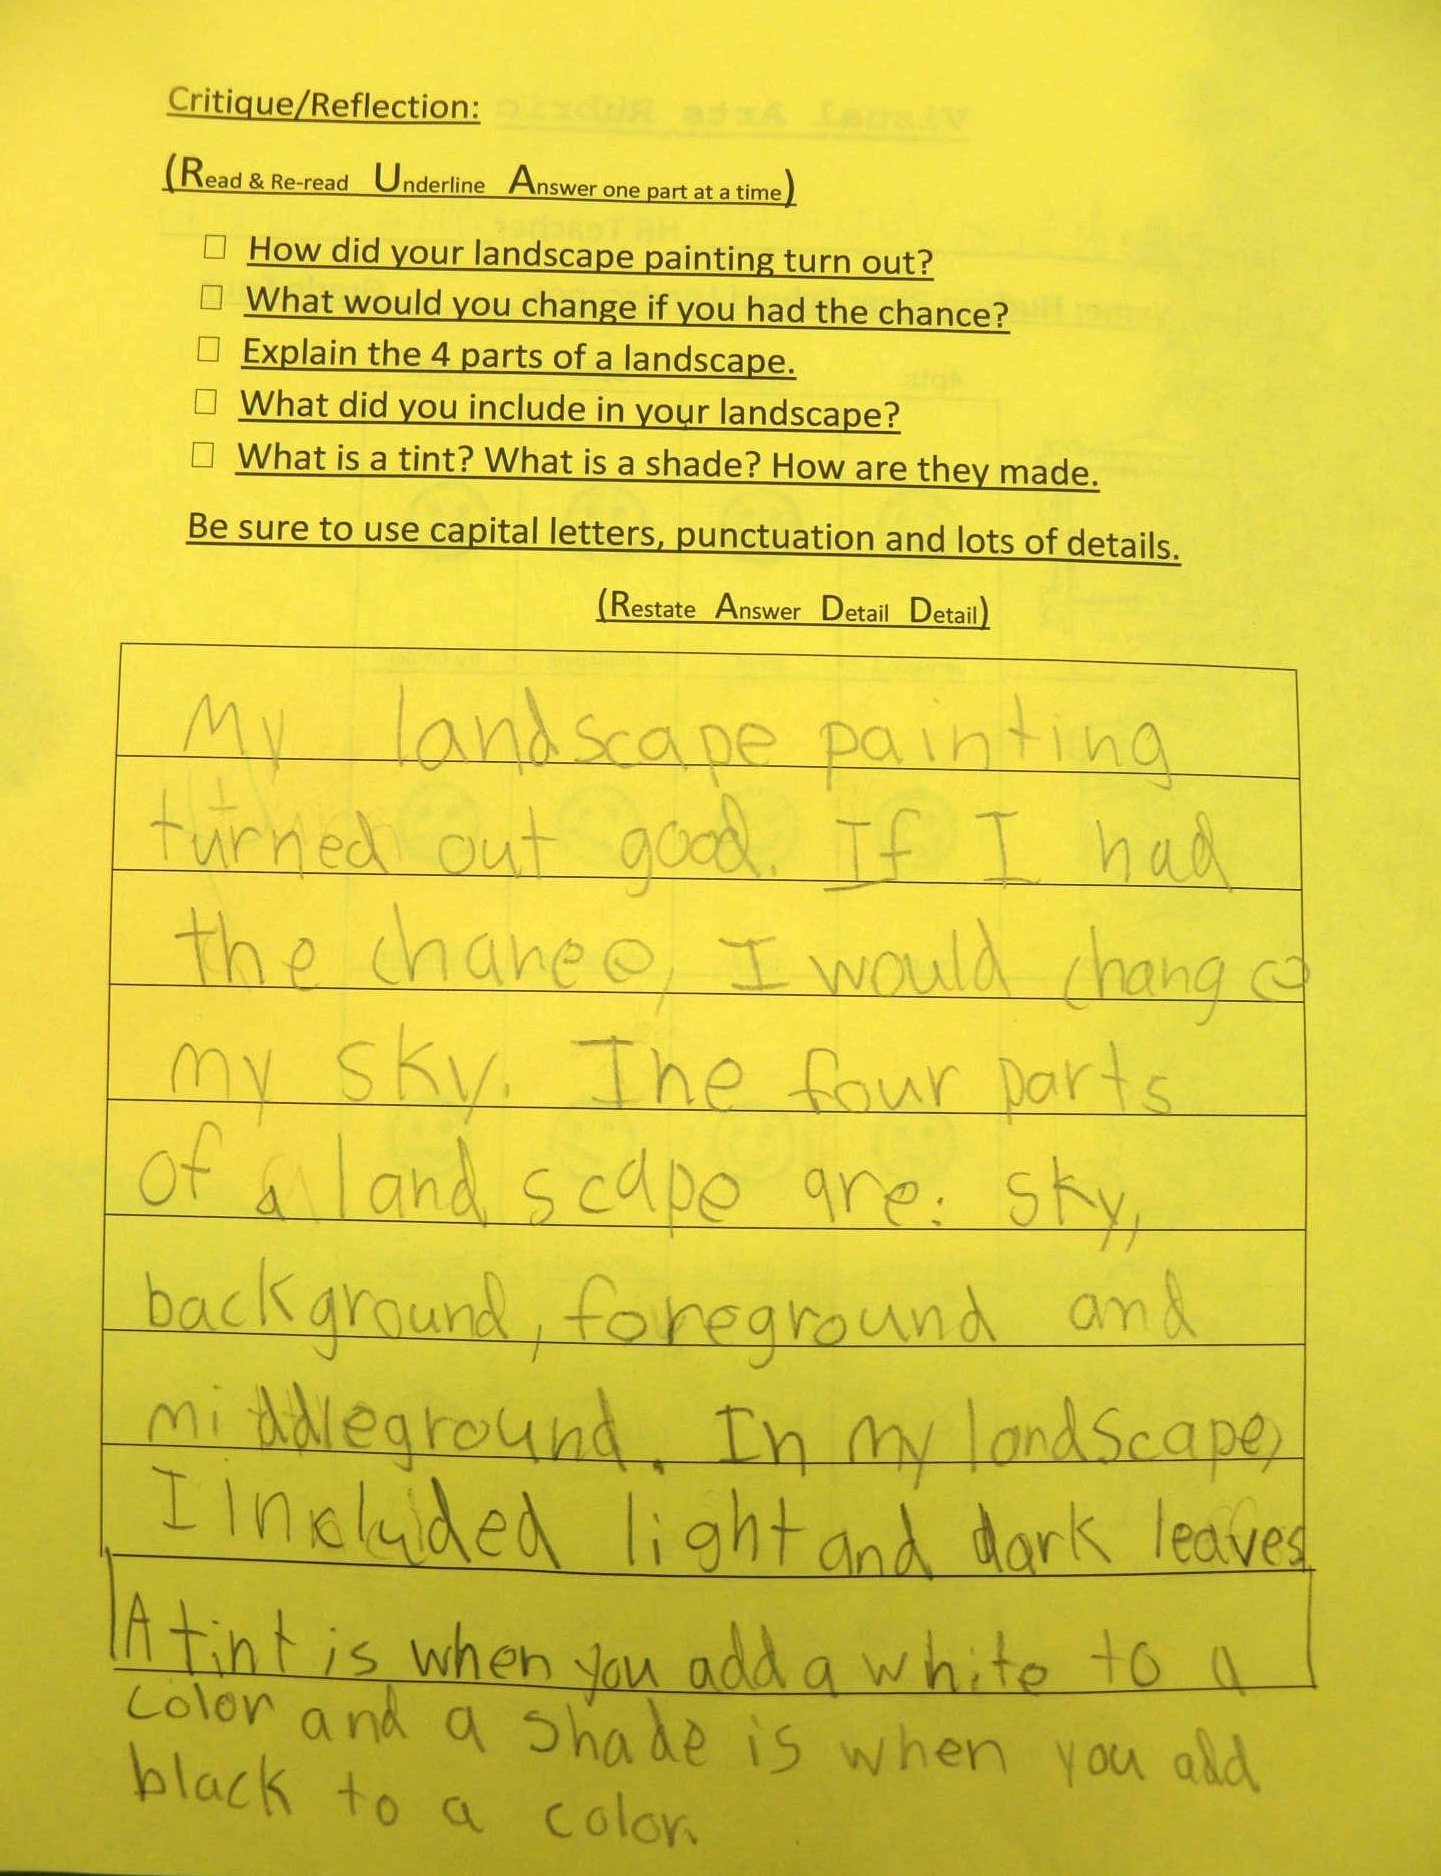 Critique/Reflection:
(Read & Re-read Underline Answer one part at a time)
□ How did your landscape painting turn out?
□ What would you change if you had the chance?
□ Explain the 4 parts of a landscape.
□ What did you include in your landscape?
□ What is a tint? What is a shade? How are they made.
Be sure to use capital letters, punctuation and lots of details.
(Restate Answer Detail Detail)
My landscape painting
turned out good. If I had
the chance, I would change
my sky. The four parts
of a landscape are: sky,
background, foreground and
middleground. In my landscape,
I included light and dark leaves.
A tint is when you add a white to a
color and a shade is when you add
black to a color.